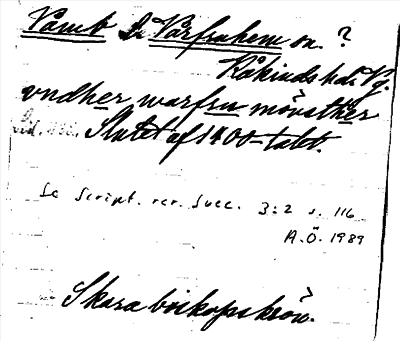 Vamb Se Varfruhem sn. ?
Kåkinds hd. Vg.
vndher warfru mönsther
Slutet af 1400-talet.
Se Script. rer. Svec. 3:2 s. 116
A.Ö. 1989
Skara biskopskrön.